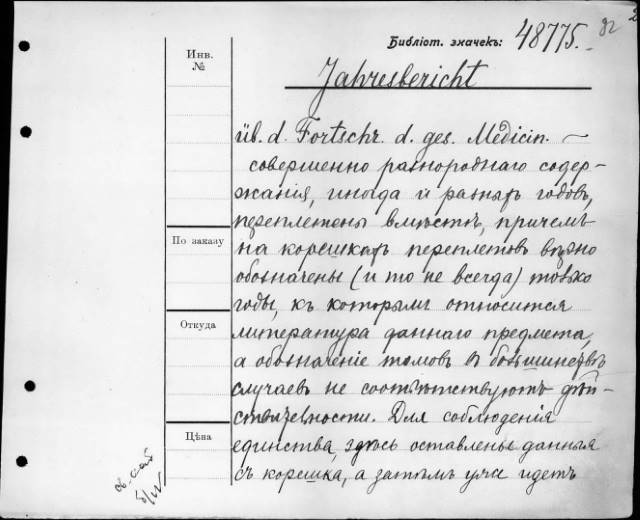 Библіот. значекъ: 48775.
Jahresbericht
Инв. №
üb. d. Fortschr. d. ges. Medicin. —
совершенно разнороднаго содер-
жанія, иногда и разныхъ годовъ,
переплетены вмѣстѣ, причемъ
По заказу
на корешкахъ переплетовъ вѣрно
обозначены (и то не всегда) только
годы, къ которымъ относится
Откуда
литература даннаго предмета,
а обозначеніе томовъ въ большинствѣ
случаевъ не соотвѣтствуютъ дѣй-
ствительности. Для соблюденія
Цѣна
единства здѣсь оставлены данныя
съ корешка, а затѣмъ уже идетъ